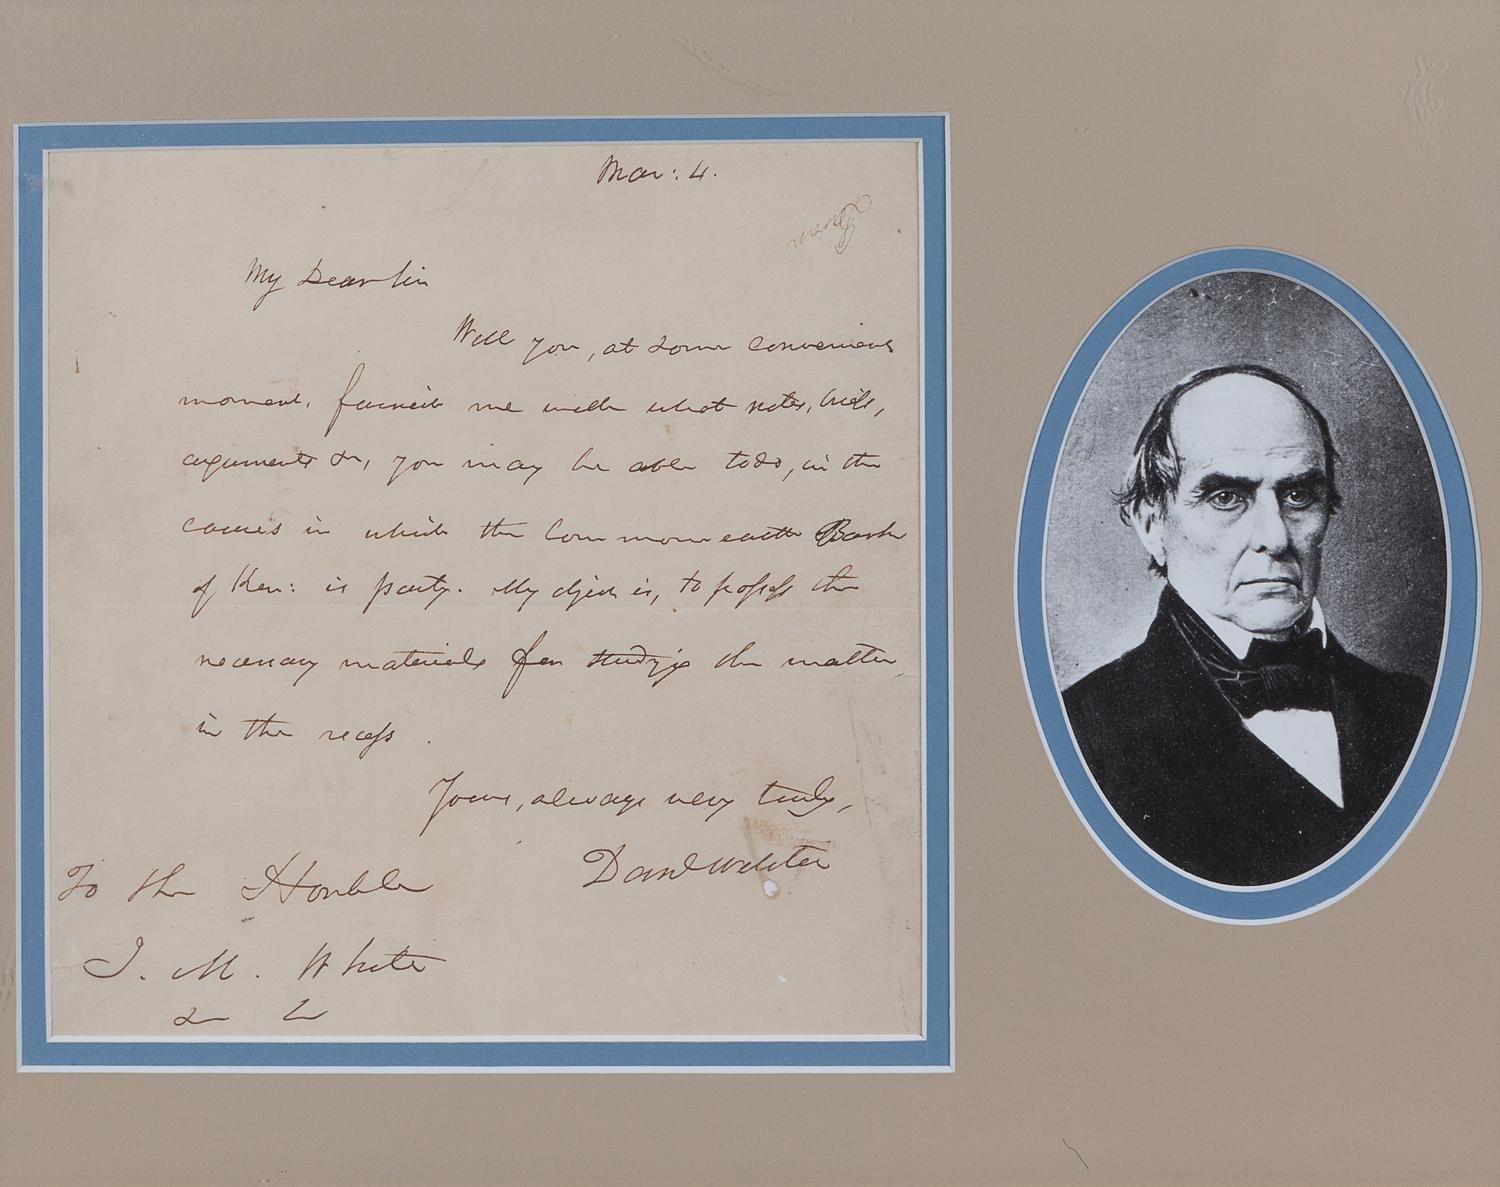 Mar: 4.
My Dear Sir
Will you, at some convenient
moment, furnish me with what notes, briefs,
arguments &c, you may be able to do, in the
causes in which the Commonwealth Bank
of Ken: is party. My object is, to possess the
necessary materials for studyig the matter
in the recess.
Yours, always very truly,
Danl Webster
To the Honble
J. M. White
&c &c